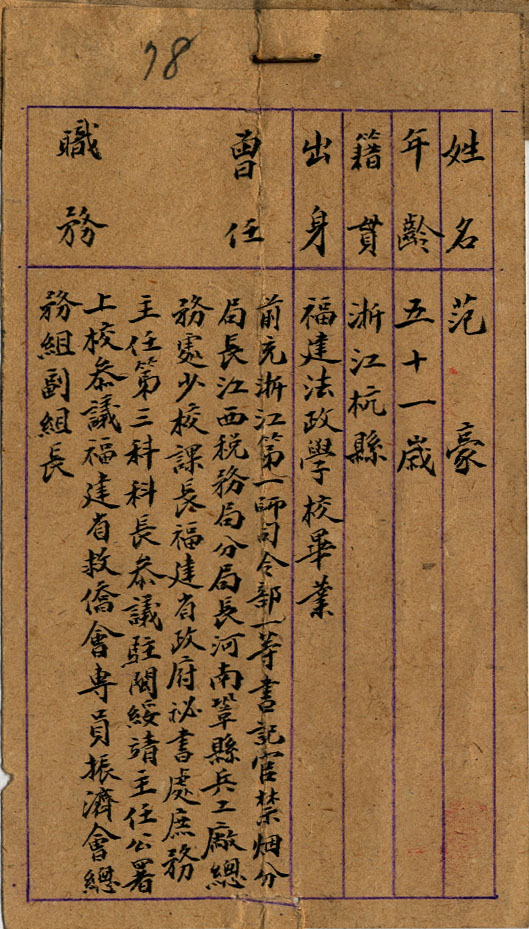 78
姓名 范豪
年齡 五十一歲
籍貫 浙江杭縣
出身 福建法政學校畢業
曾任
職務
前充浙江第一師司令部一等書記官禁烟分
局長江西税務局分局長河南鞏縣兵工廠總
務處少校課長福建省政府祕書處庶務
主任第三科科長叅議駐閩綏靖主任公署
上校叅議福建省救僑會專員振濟會總
務組副組長